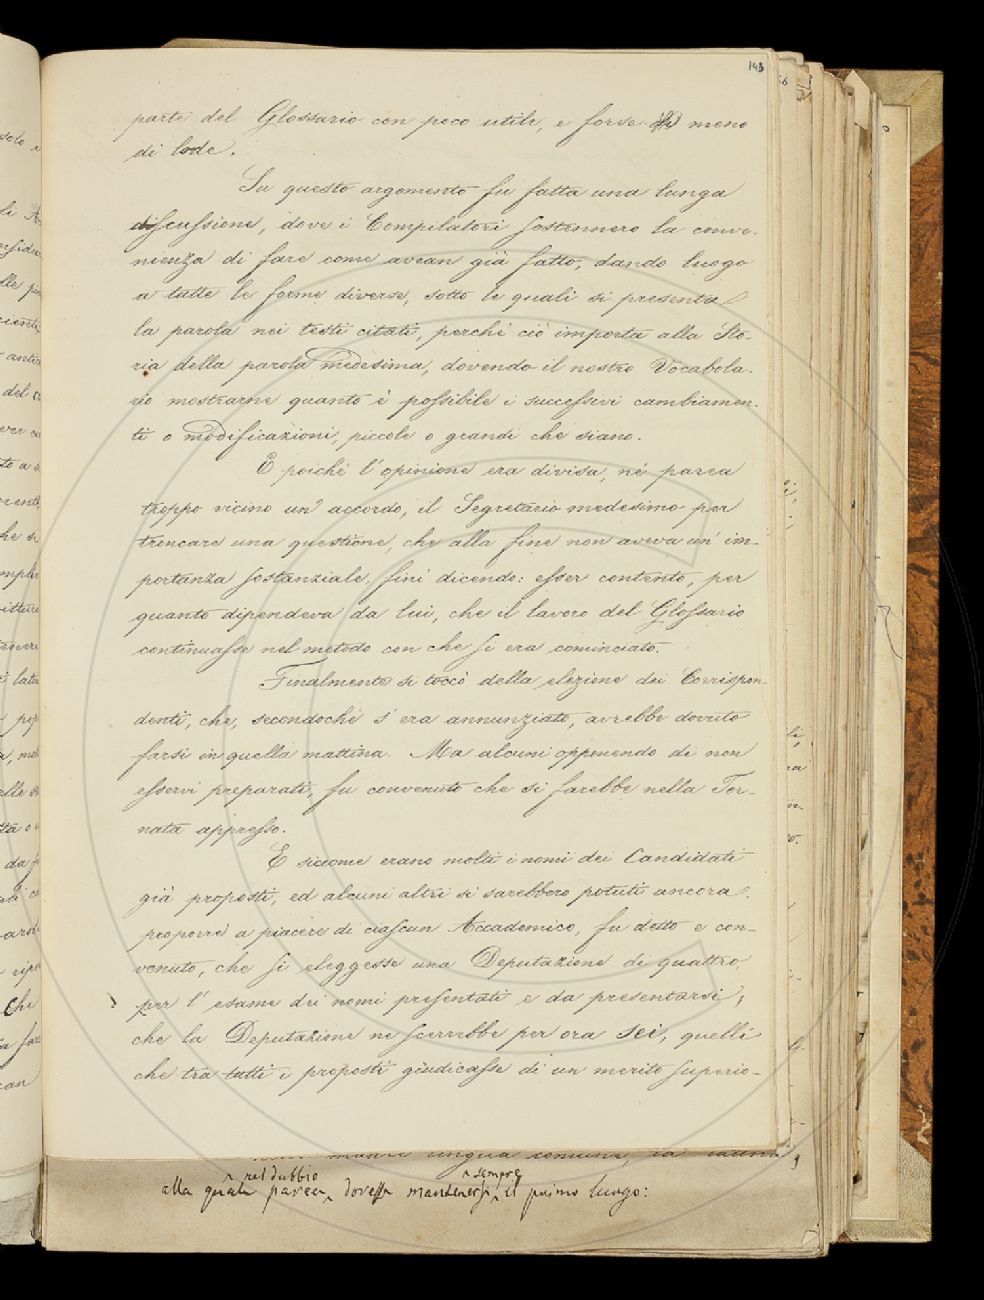 143
parte del Glossario con poco utile, e forse meno
di lode.
Su questo argomento fu fatta una lunga
discussione, dove i Compilatori sostennero la conve-
nienza di fare come avean già fatto, dando luogo
a tutte le forme diverse, sotto le quali si presenta
la parola nei testi citati, perchè ciò importa alla Sto-
ria della parola medesima, dovendo il nostro Vocabola-
rio mostrarne quanto è possibile i successivi cambiamen-
ti o modificazioni, piccole o grandi che siano.
E poichè l'opinione era divisa, nè parea
troppo vicino un accordo, il Segretario medesimo per
troncare una questione, che alla fine non aveva un' im-
portanza sostanziale, finì dicendo: esser contento, per
quanto dipendeva da lui, che il lavoro del Glossario
continuasse nel metodo con che si era cominciato.
Finalmente si toccò della elezione dei Corrispon-
denti, che, secondochè s'era annunziato, avrebbe dovuto
farsi in quella mattina. Ma alcuni opponendo di non
esservi preparati, fu convenuto che si farebbe nella Tor-
nata appresso.
E siccome erano molti i nomi dei Candidati
già proposti, ed alcuni altri si sarebbero potuti ancora
proporre a piacere di ciascun Accademico, fu detto e con-
venuto, che si eleggesse una Deputazione di quattro
per l'esame dei nomi presentati e da presentarsi;
che la Deputazione ne scerrebbe per ora sei, quelli
che tra tutti i proposti giudicasse di un merito superio-
lingua comune, la
nel dubbio sempre
alla quale parea dovesse mantenersi il primo luogo: